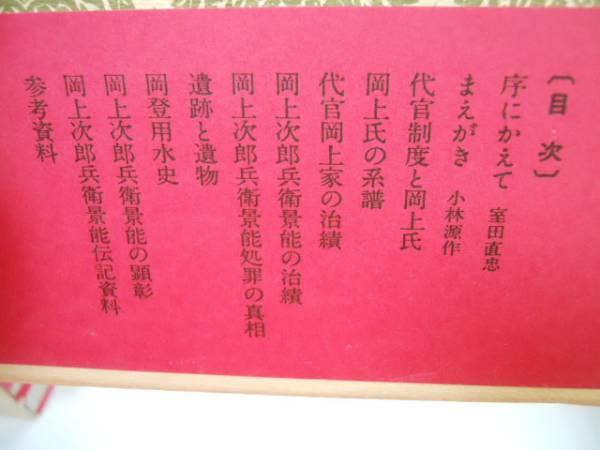 〔目次〕
序にかえて 室田直忠
まえがき 小林源作
代官制度と岡上氏
岡上氏の系譜
代官岡上家の治績
岡上次郎兵衛景能の治績
岡上次郎兵衛景能処罪の真相
遺跡と遺物
岡登用水史
岡上次郎兵衛景能の顕彰
岡上次郎兵衛景能伝記資料
参考資料